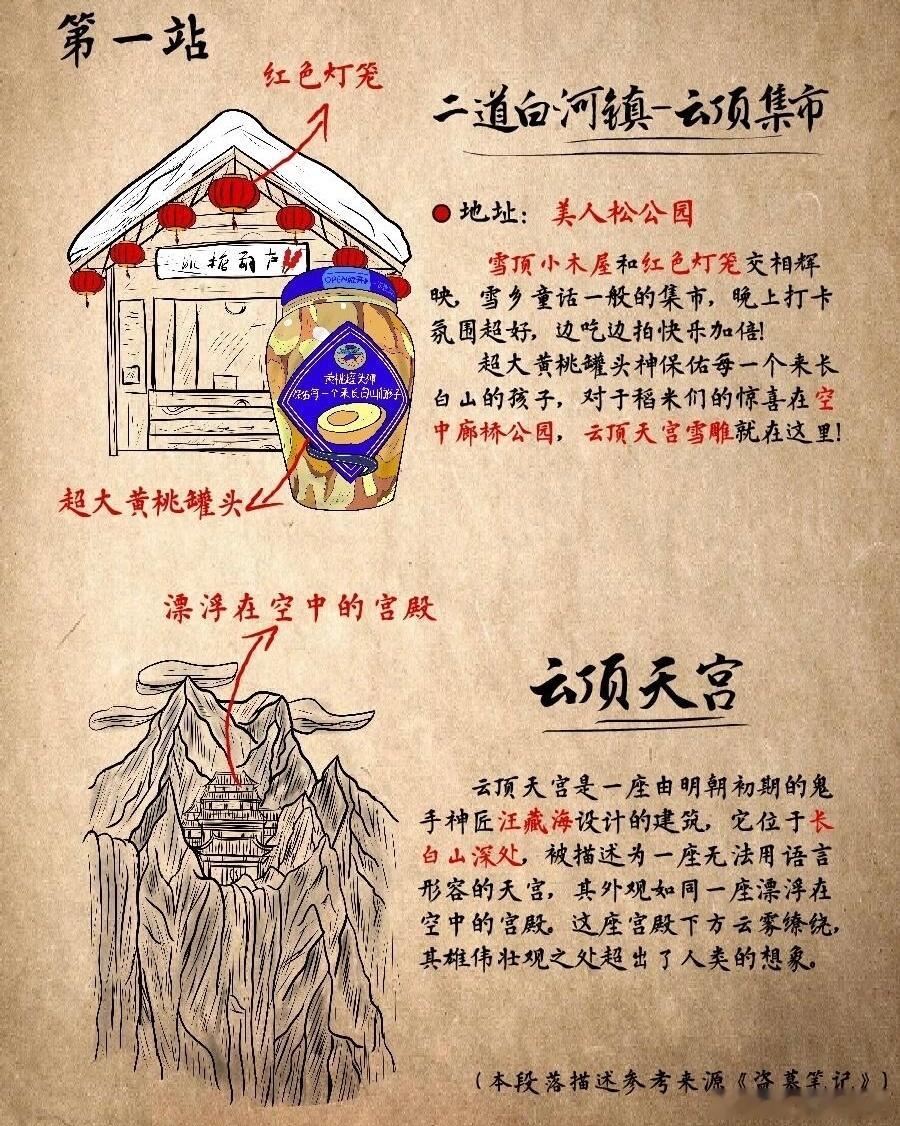 第一站
红色灯笼
二道白河镇-云顶集市
地址： 美人松公园
冰糖葫芦
雪顶小木屋和红色灯笼交相辉
映，雪乡童话一般的集市，晚上打卡
氛围超好，边吃边拍快乐加倍！
超大黄桃罐头神保佑每一个来长
白山的孩子，对于稻米们的惊喜在空
中廊桥公园，云顶天宫雪雕就在这里！
OPEN
黄桃罐头神
保佑每一个来长白山的孩子
超大黄桃罐头
漂浮在空中的宫殿
云顶天宫
云顶天宫是一座由明朝初期的鬼
手神匠汪藏海设计的建筑，它位于长
白山深处，被描述为一座无法用语言
形容的天宫，其外观如同一座漂浮在
空中的宫殿。这座宫殿下方云雾缭绕，
其雄伟壮观之处超出了人类的想象。
（本段落描述参考来源《盗墓笔记》）